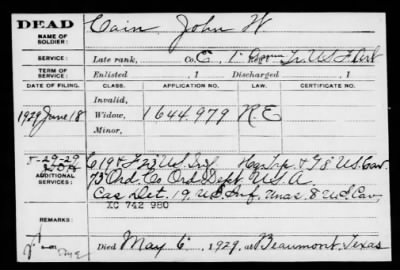 DEAD
NAME OF SOLDIER: Cain, John W
SERVICE: Late rank, Co. E, 1" Tr. US F Art
TERM OF SERVICE: Enlisted , 1 Discharged , 1
DATE OF FILING. CLASS. APPLICATION NO. LAW. CERTIFICATE NO.
Invalid,
1929 June 18 Widow, 1644,979 R E
Minor,
5-29-29 C 19 & F 23 U.S. Inf. Hqs Trp & G 8 U.S. Cav.
ADDITIONAL SERVICES: 73 Ord. Co Ord Dept U.S.A
Cas Det. 19 U.S. Inf. Unas. 8 U.S. Cav,
XC 742 980
Died May 6", 1929, at Beaumont, Texas